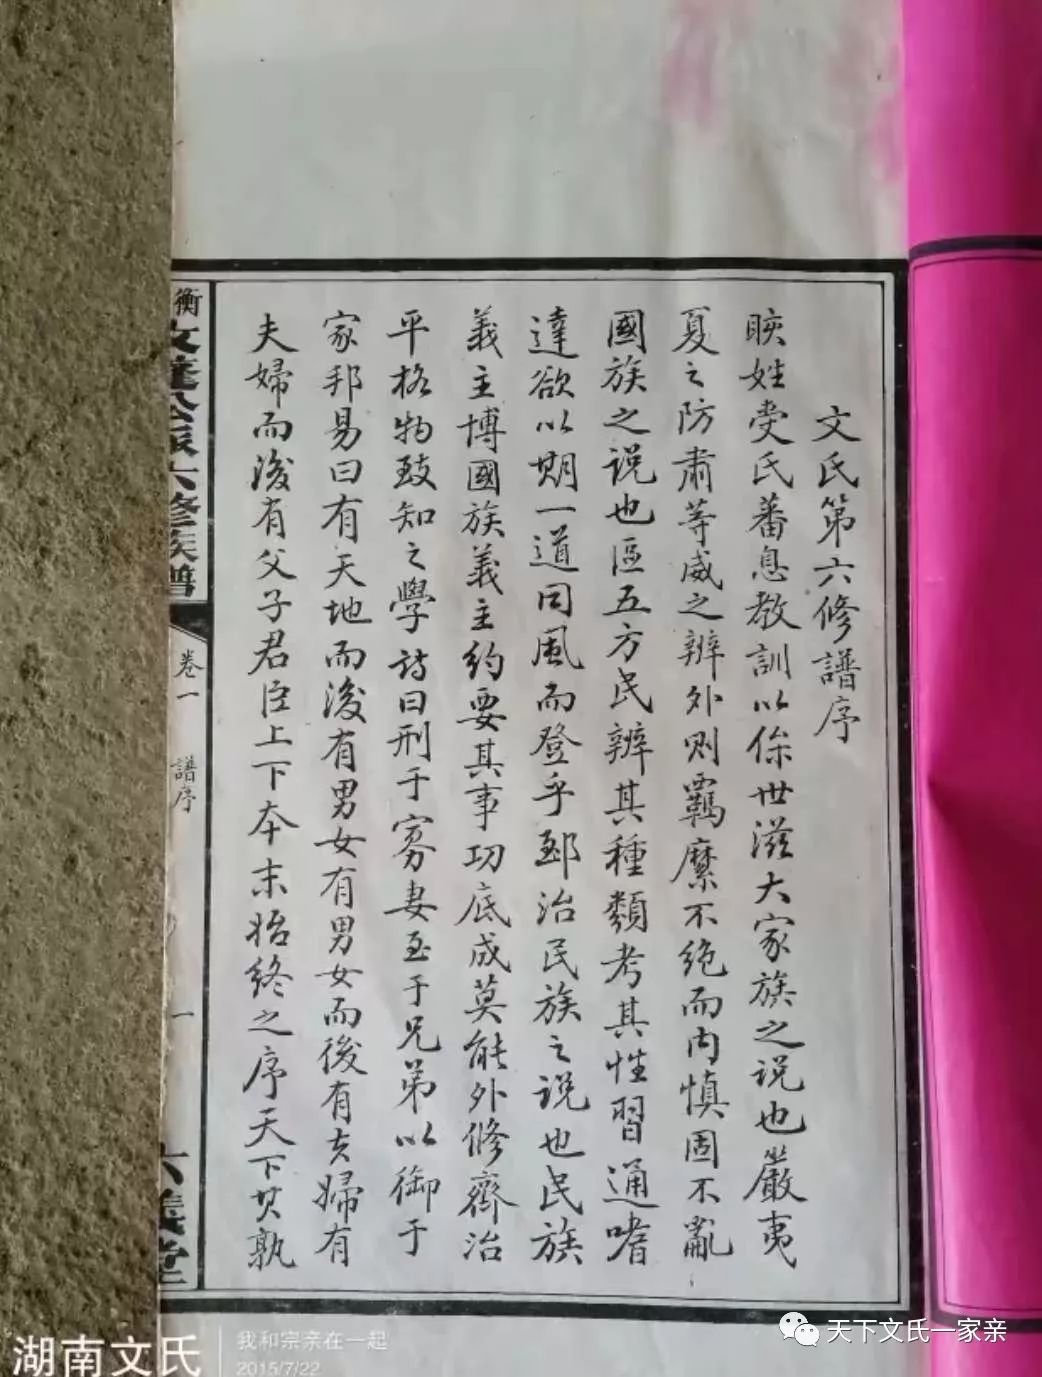 文氏第六修譜序
賧姓受氏蕃息教訓以保世滋大家族之說也嚴夷
夏之防肅等威之辨外則羈縻不絶而內慎固不亂
國族之說也區五方民辨其種類考其性習通嗜
達欲以期一道同風而登乎郅治民族之說也民族
義主博國族義主約要其事功底成莫能外修齊治
平格物致知之學詩曰刑于寡妻至于兄弟以御于
家邦易曰有天地而後有男女有男女而後有夫婦有
夫婦而後有父子君臣上下本末始終之序天下其孰
衡
文 公派六修族譜
卷一
譜序
一
六義堂
湖南文氏
我和宗亲在一起
2015/7/22
天下文氏一家亲